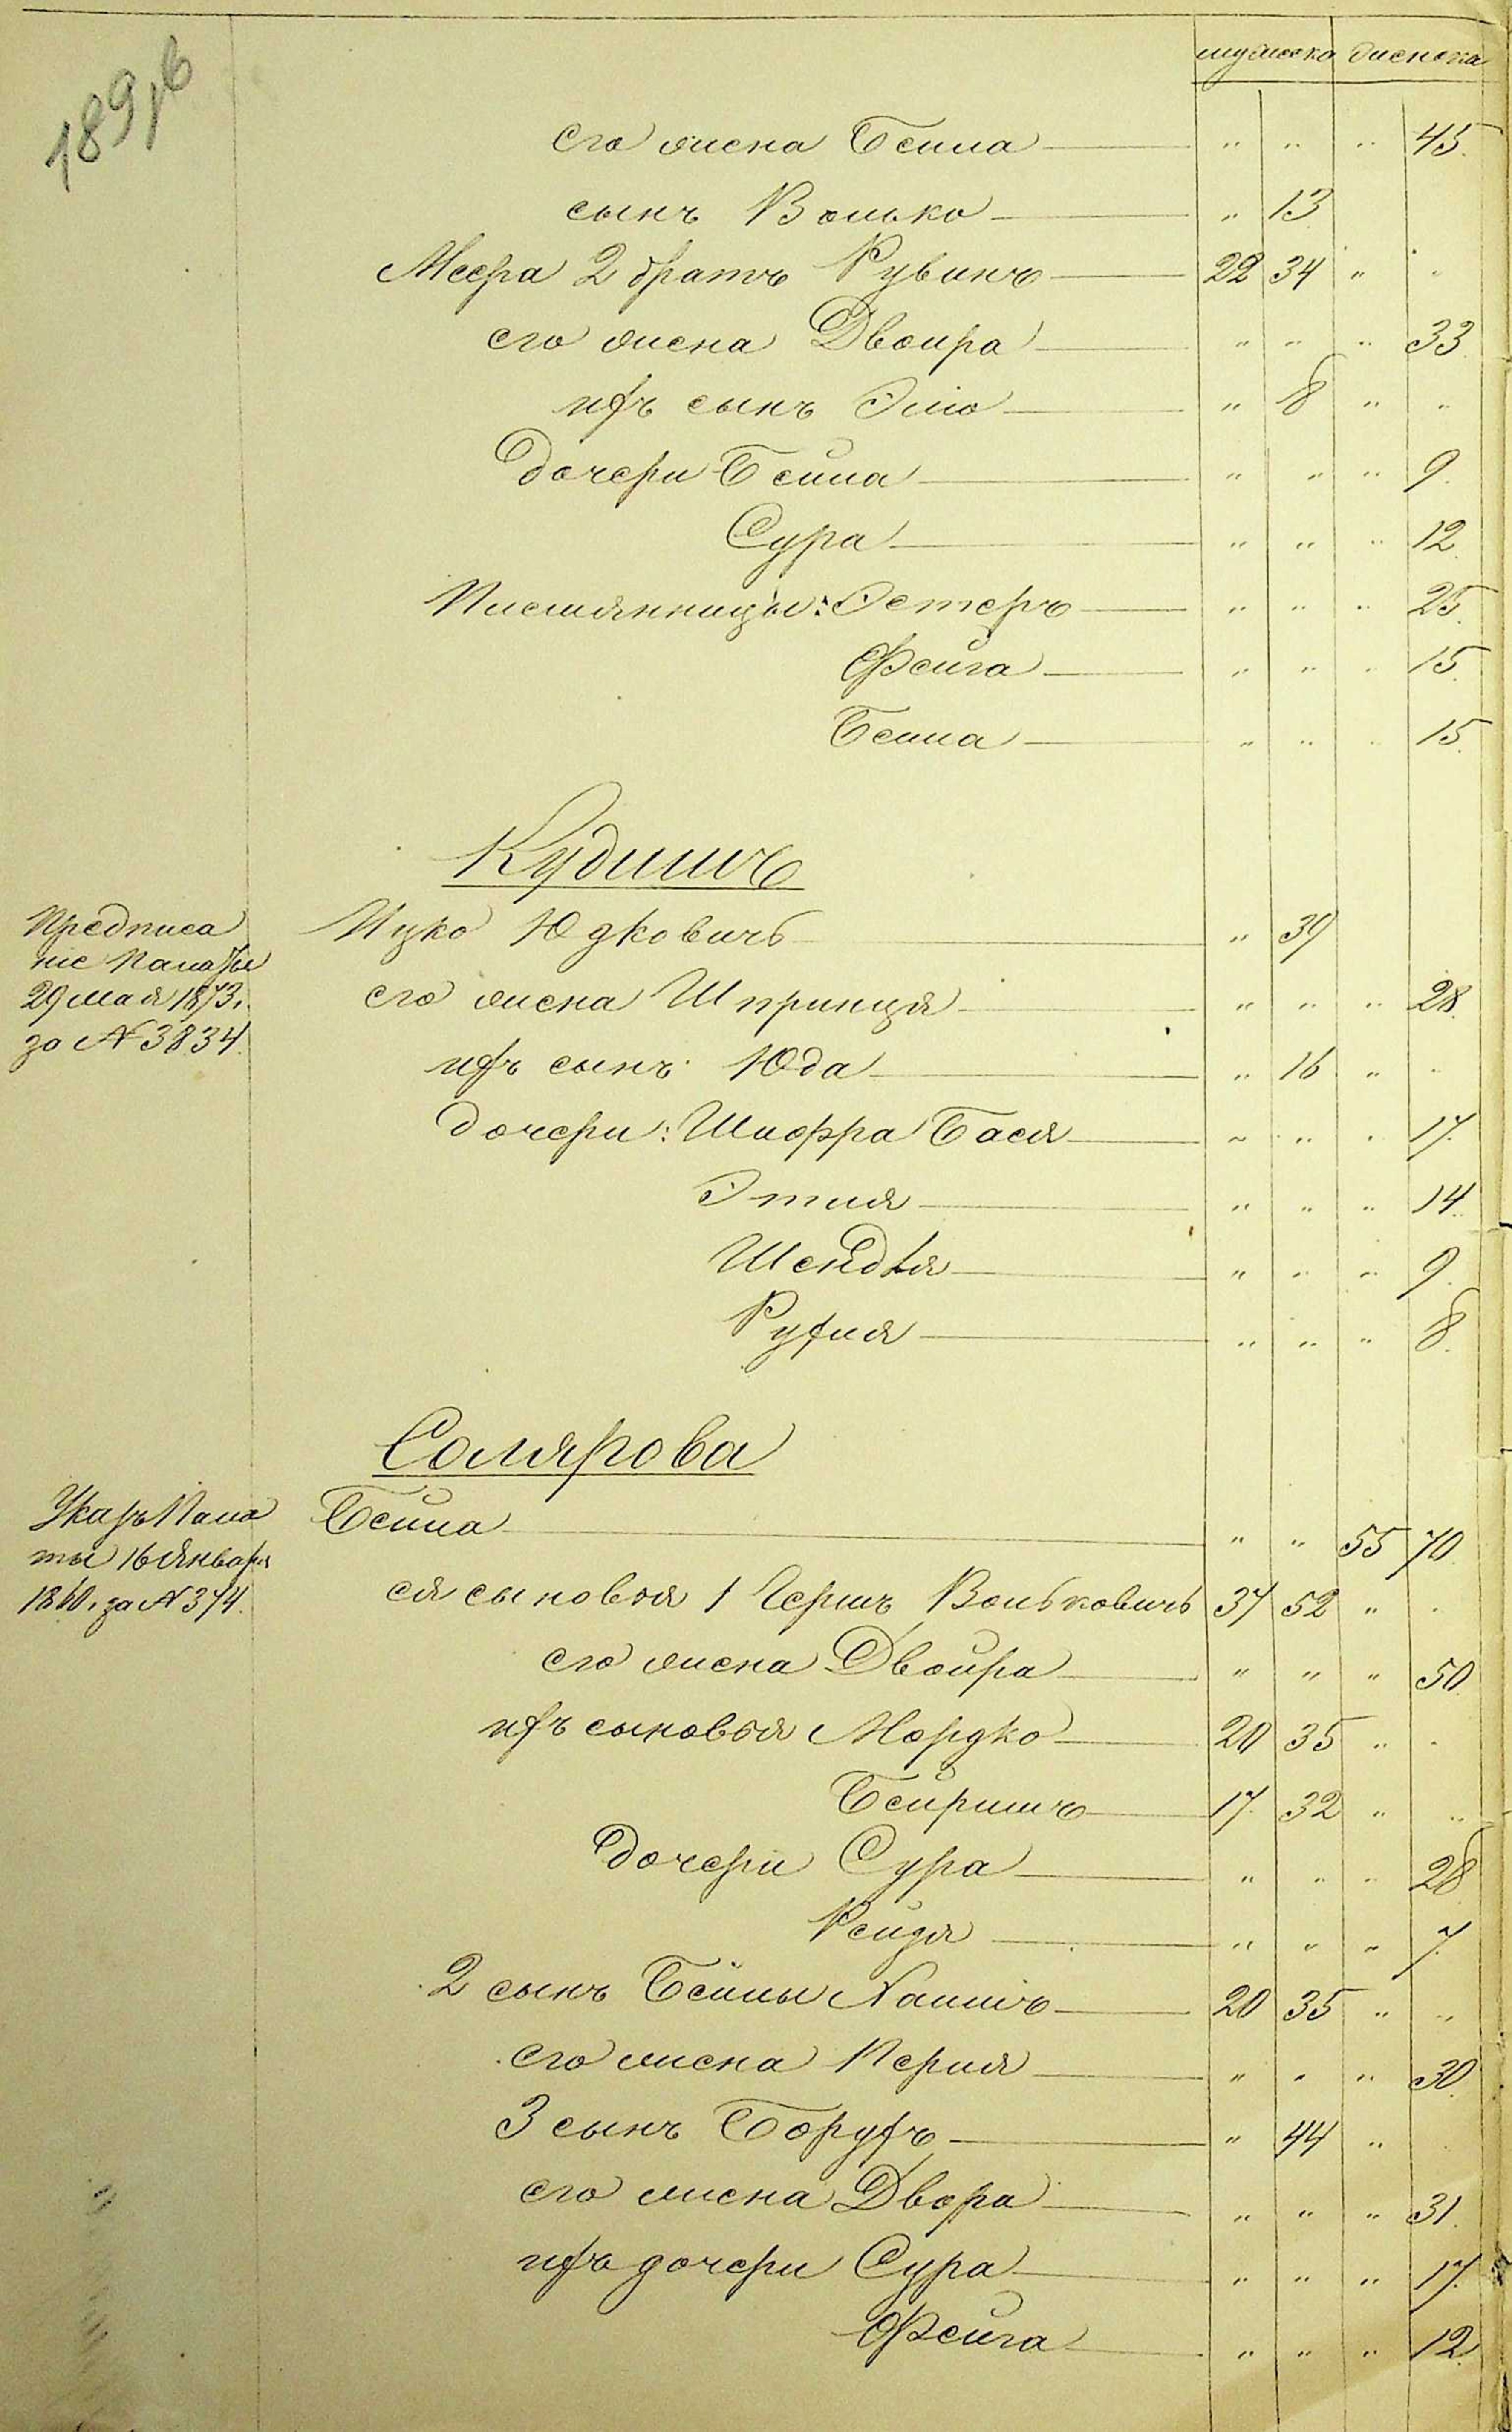 189,6
мужеска женска
его жена Бейла „ „ „ 45.
сынъ Волько „ 13
Меера 2 братъ Рувинъ 22 34 „ „
его жена Двойра „ „ „ 33
ихъ сынъ Эліо „ 8 „ „
дочери Бейла „ „ „ 9.
Сура „ „ „ 12.
Племянницы: Эстеръ „ „ „ 25.
Фейга „ „ „ 15.
Бейла „ „ „ 15.
Кудишъ
Предписа
ніе Палаты
29 мая 1873 г.
за № 3834.
Ицко Юдковичъ „ 39
его жена Шпринця „ „ „ 28.
ихъ сынъ Юда „ 16 „ „
дочери: Шифра Бася „ „ „ 17.
Этля „ „ „ 14.
Шендля „ „ „ 9.
Рухля „ „ „ 8.
Солярова
Указъ Пала
ты 16 Января
1860 г. за № 374.
Бейла „ „ 55 70.
ея сыновья 1 Гершъ Вольковичъ 37 52 „ „
его жена Двойра „ „ „ 50
ихъ сыновья Мордко 20 35 „ „
Бейришъ 17. 32 „ „
дочери Сура „ „ „ 28
Рейзя „ „ „ 7.
2 сынъ Бейлы Хаимъ 20 35 „ „
его жена Перля „ „ „ 30.
3 сынъ Борухъ „ 44 „ „
его жена Двора „ „ „ 31.
ихъ дочери Сура „ „ „ 17.
Фейга „ „ „ 12.